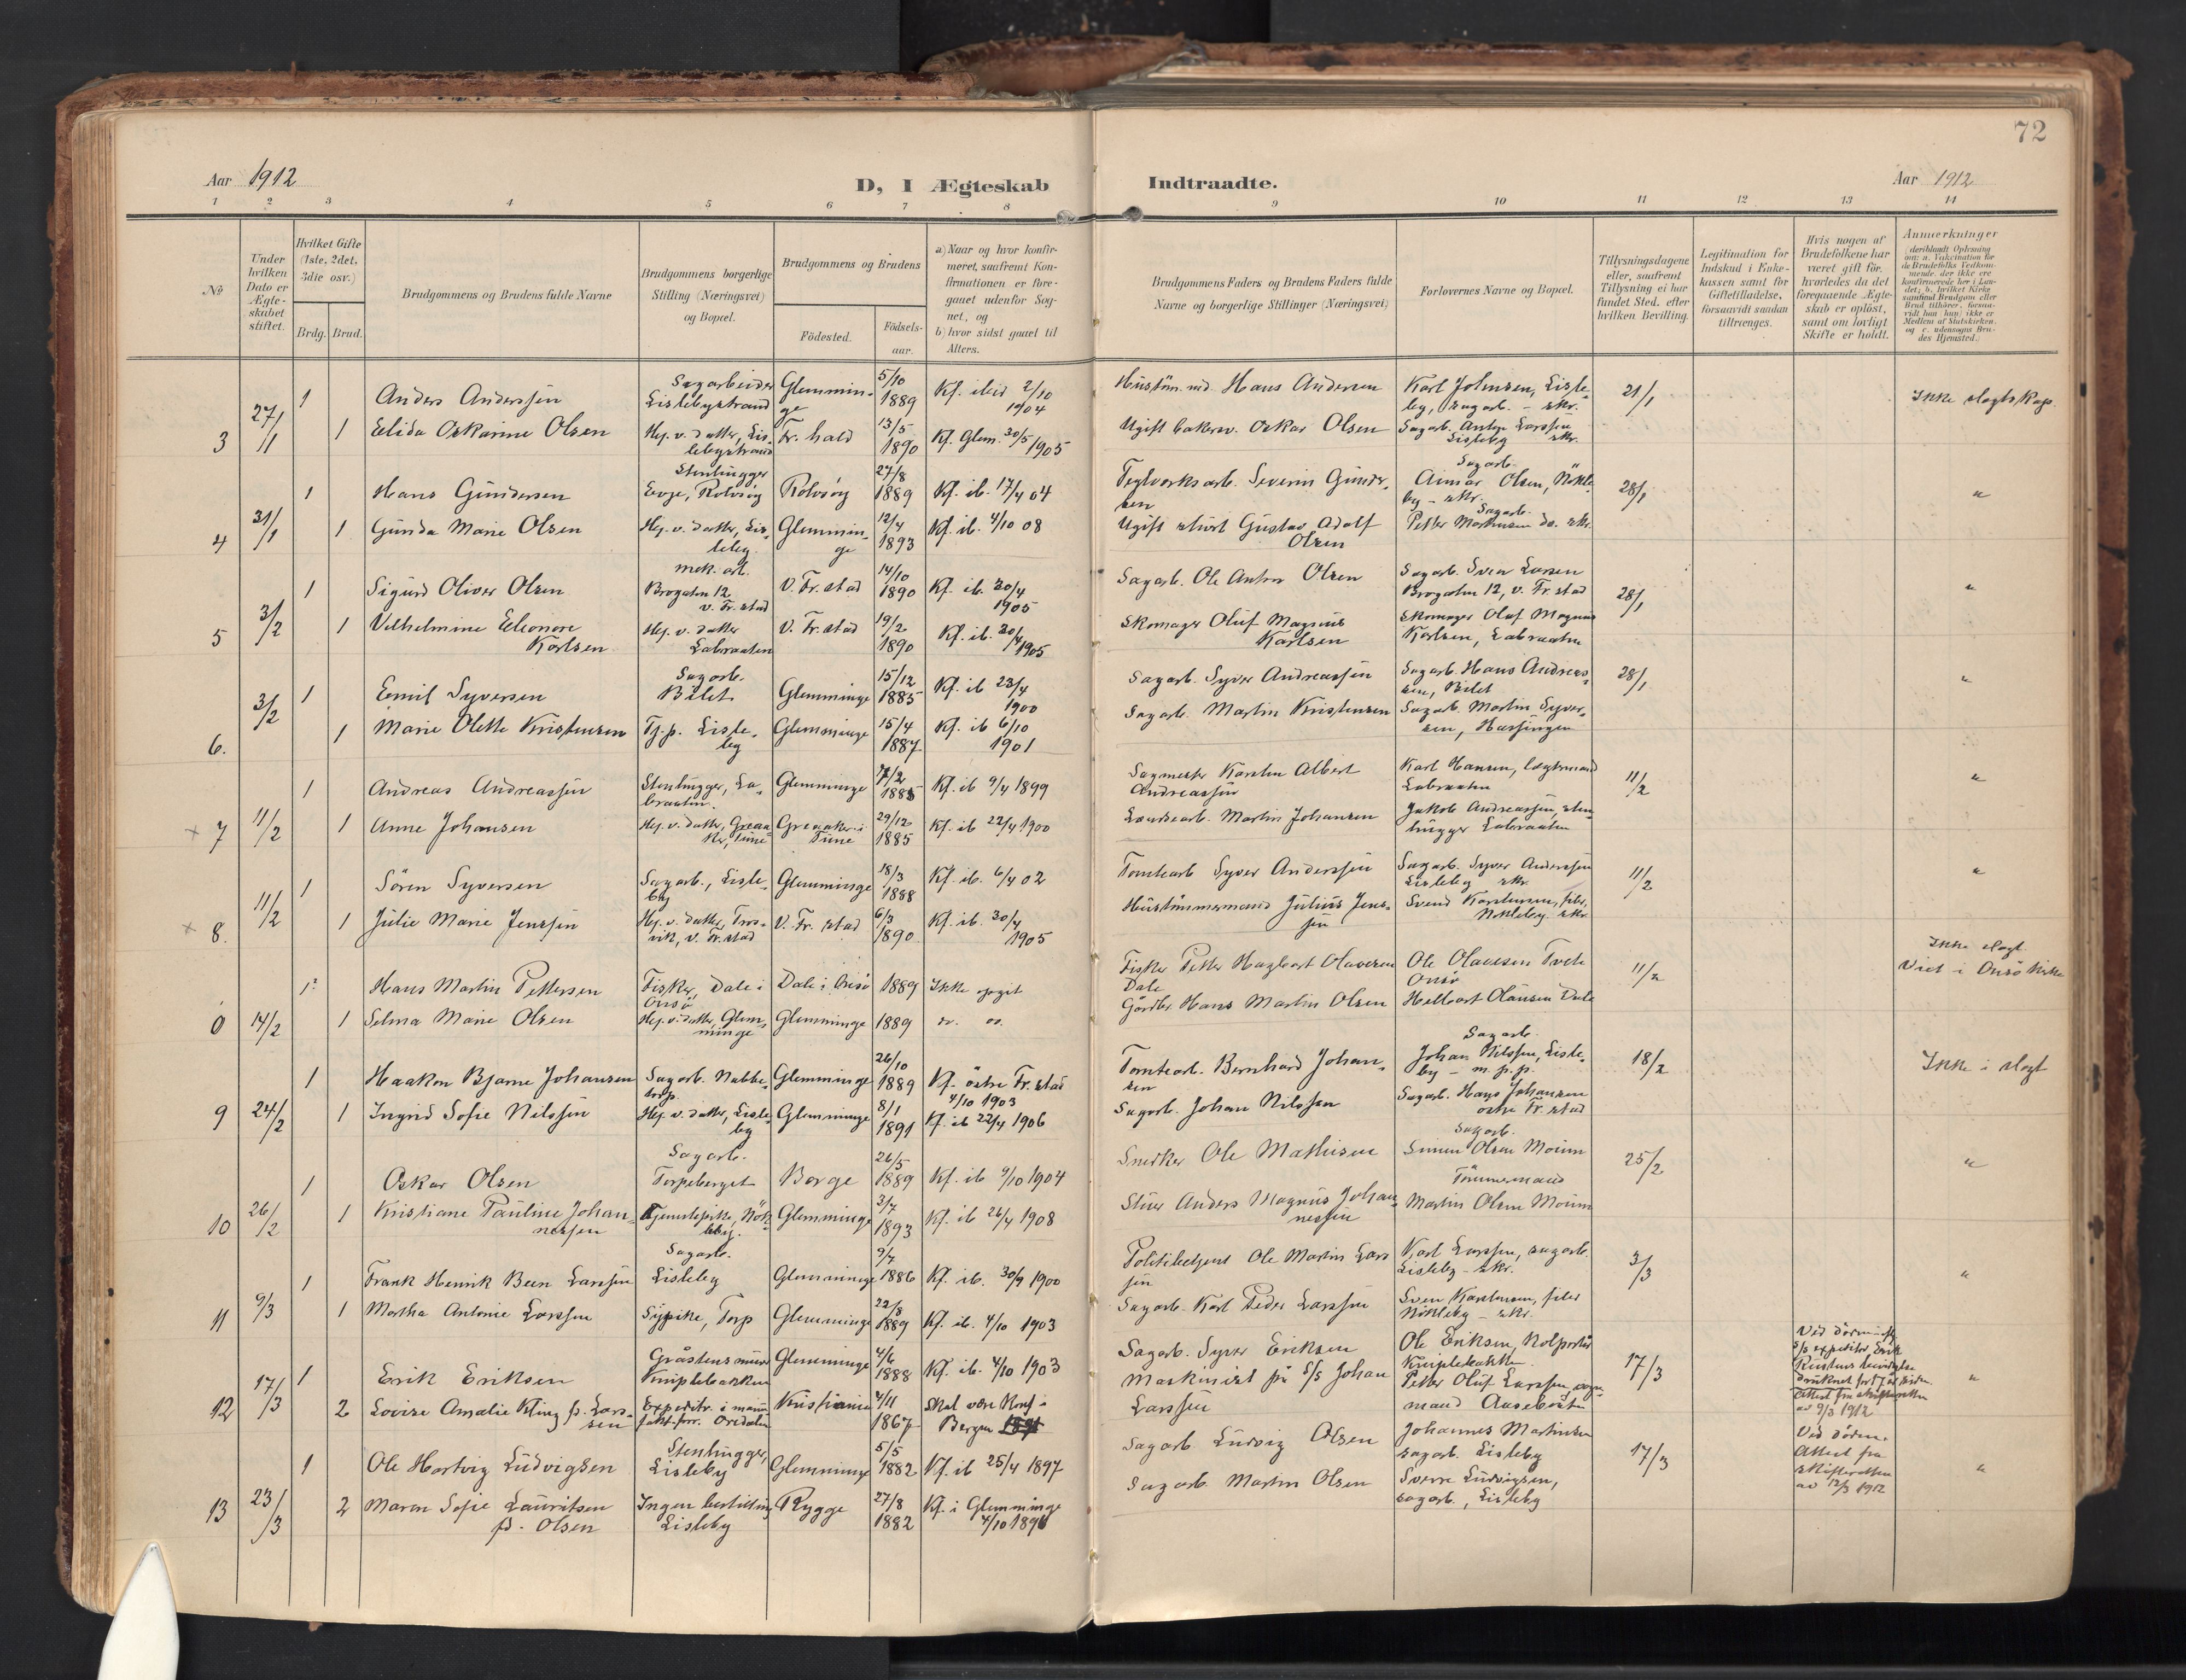 72
Aar 1912
D, I Ægteskab
Indtraadte.
Aar 1912
1 2 3 4 5 6 7 8 9 10 11 12 13 14
No
Under hvilken Dato er Ægteskabet stiftet.
Hvilket Gifte (1ste, 2det, 3die osv.)
Brdg. Brud.
Brudgommens og Brudens fulde Navne
Brudgommens borgerlige Stilling (Næringsvei) og Bopæl.
Brudgommens og Brudens
Födested.
Födsels-aar.
a) Naar og hvor konfirmeret, saafremt Konfirmationen er foregaaet udenfor Sognet, og
b) hvor sidst gaaet til Alters.
Brudgommens Faders og Brudens Faders fulde Navne og borgerlige Stillinger (Næringsvei)
Forlovernes Navne og Bopæl.
Tillysningsdagene eller, saafremt Tillysning ei har fundet Sted, efter hvilken Bevilling.
Legitimation for Indskud i Enkekassen samt for Giftetilladelse, forsaavidt saadan tiltrænges.
Hvis nogen af Brudefolkene har været gift för, hvorledes da det foregaaende Ægteskab er oplöst, samt om lovligt Skifte er holdt.
Anmerkninger (deriblandt Oplysning om: a. Vakcination for de Brudefolks Vedkommende, der ikke ere konfirmerede her i Landet; b. hvilket Kirkesamfund Brudgom eller Brud tilhörer, forsaavidt han (hun) ikke er Medlem af Statskirken, og c. udensogns Brudes Hjemsted.)
3 27/1 1 Anders Anderssen Sagarbeider Lislebystrand Glemminge 5/10 1889 Kf. 2/10 1904 Hans Andersen Karl Johnsen, Lisleby, sagarb. - skr. 21/1 Ikke slegtskap.
1 Elida Oskarine Olsen Hj. v. datter, Lislebystrand Fr. hald 13/5 1890 Kf. Glem. 30/5 1905 Ugift Oskar Olsen Sagarb. Anton Larssen Lisleby skr.
4 31/1 1 Hans Gundersen Stenhugger Evje, Rolvsöy Rolvsöy 27/8 1889 Kf. ib. 17/4 04 Teglverksarb. Severin Gundersen Sagarb. Olsen, Nökleby - skr. 28/1 "
1 Gunda Marie Olsen Hj. v. datter, Lisleby. Glemminge 12/4 1893 Kf. ib. 4/10 08 Ugift Gustav Adolf Olsen Sagarb. Petter do. skr.
5 3/2 1 Sigurd Oliver Olsen mek. arb. Brogaten 12 v. Fr.stad V. Fr.stad 14/10 1890 Kf. ib. 30/4 1905 Sagarb. Ole Anton Olsen Sagarb. Sven Larsen Brogaten 12, v. Fr.stad 28/1 "
1 Vilhelmine Eleonore Karlsen Hj. v. datter Labraaten V. Fr.stad 19/2 1890 Kf. ib. 30/4 1905 Skomager Oluf Magnus Karlsen Skomager Oluf Magnus Karlsen, Labraaten
6. 3/2 1 Emil Syversen Sagarb. Bilet Glemminge 15/12 1885 Kf. ib 23/4 1900 Sagarb. Syver Andreassen Sagarb. Hans Andreassen, Bilet 28/1 "
1 Marie Olette Kristensen Tj.p. Lisleby Glemminge 15/4 1887 Kf. ib 6/10 1901 Sagarb. Martin Kristensen Sagarb. Martin Syversen,
× 7 11/2 1 Andreas Andreassen Stenhugger, Labraaten. Glemminge 7/2 Kf. ib 9/4 1899 Sagmester Karsten Albert Andreassen Karl Hansen, Labraaten 11/2 "
1 Anne Johansen Hj. v. datter, Greaaker, Tune Greaaker i Tune 29/12 1885 Kf. ib 22/4 1900 Martin Johansen Jakob Andreassen, stenhugger Labraaten
× 8. 11/2 1 Sören Syversen Sagarb., Lisleby Glemminge 18/3 1888 Kf. ib. 6/4 02 Tomtearb. Syver Anderssen Sagarb. Syver Anderssen Lisleby skr. 11/2 "
1 Julie Marie Jenssen Hj. v. datter, v. Fr.stad V. Fr.stad 6/3 1890. Kf. ib. 30/4 1905 Hustömmermand Julius Jenssen Svend Karstensen, Nökleby skr.
0 14/2 1 Hans Martin Pettersen Fisker, Dale i Onsö Dale i Onsö 1889 Ikke opgit Fisker Petter Hagbart Olavesen Dale Ole Olaussen Tvete Onsö 11/2 Ikke slegt. Viet i Onsö kirke
1 Selma Marie Olsen Hj. v. datter, Glemminge Glemminge 1889 do. do. Hans Martin Olsen Helbert Olaussen Dale
9 24/2 1 Haakon Bjarne Johansen Sagarb. Nabbetorp Glemminge 26/10 1889 Kf. östre Fr.stad 4/10 1903 Tomtearb. Bernhard Johansen Sagarb. Johan Nilssen, Lisleby - m.p.p. 18/2 Ikke i slegt
1 Ingrid Sofie Nilssen Hj. v. datter, Lisleby Glemminge 8/1 1891 Kf. ib 22/4 1906 Sagarb. Johan Nilssen Sagarb. Hans Johansen östre Fr.stad
10 26/2 1 Oskar Olsen Sagarb. Torpeberget Borge 26/5 1889 Kf. ib 9/10 1904 Snedker Ole Mathisen Sagarb. Simen Olsen Moum Tömmermand 25/2 "
1 Kristiane Pauline Johannessen Tjenestepike, Nökleby. Glemminge 3/7 1893 Kf. ib 26/4 1908 Anders Magnus Johannessen Martin Olsen Moum
11 9/3 1 Frank Henrik Been Larssen Sagarb. Lisleby Glemminge 9/7 1886 Kf. ib. 30/9 1900 Politibetjent Ole Martin Larssen Karl Larssen, sagarb. Lisleby - skr. 3/3 "
1 Martha Antonie Larssen Sypike, Torp Glemminge 22/8 1889 Kf. ib. 4/10 1903 Sagarb. Karl Peder Larssen Sven Karstensen, Nökleby - skr.
12 17/3 1 Erik Eriksen Gråstensmurer Kniplebakken Glemminge 4/6 1888 Kf. ib. 4/10 1903 Sagarb. Syver Eriksen Ole Eriksen, Kolportör Kniplebakken 17/3 Attest fra skifteretten av 9/3 1912 "
2 Lovise Amalie f. Larssen Kristiania 4/11 1867 Skal være Konf. i Bergen Maskinist på S/S Johan Larssen Petter Oluf Larssen,
13 23/3 1 Ole Hartvig Ludvigsen Stenhugger, Lisleby Glemminge 5/5 1882 Kf. ib 25/4 1897 Sagarb. Ludvig Olsen Johannes Martinsen sagarb. Lisleby 17/3 Ved döden. Attest fra skifteretten av 12/3 1912 "
2 Maren Sofie Lauritsen f. Olsen Ingen bestilling Lisleby Rygge 27/8 1882 Kf. i Glemminge 4/10 Sagarb. Martin Olsen Sverre Ludvigsen, sagarb., Lisleby